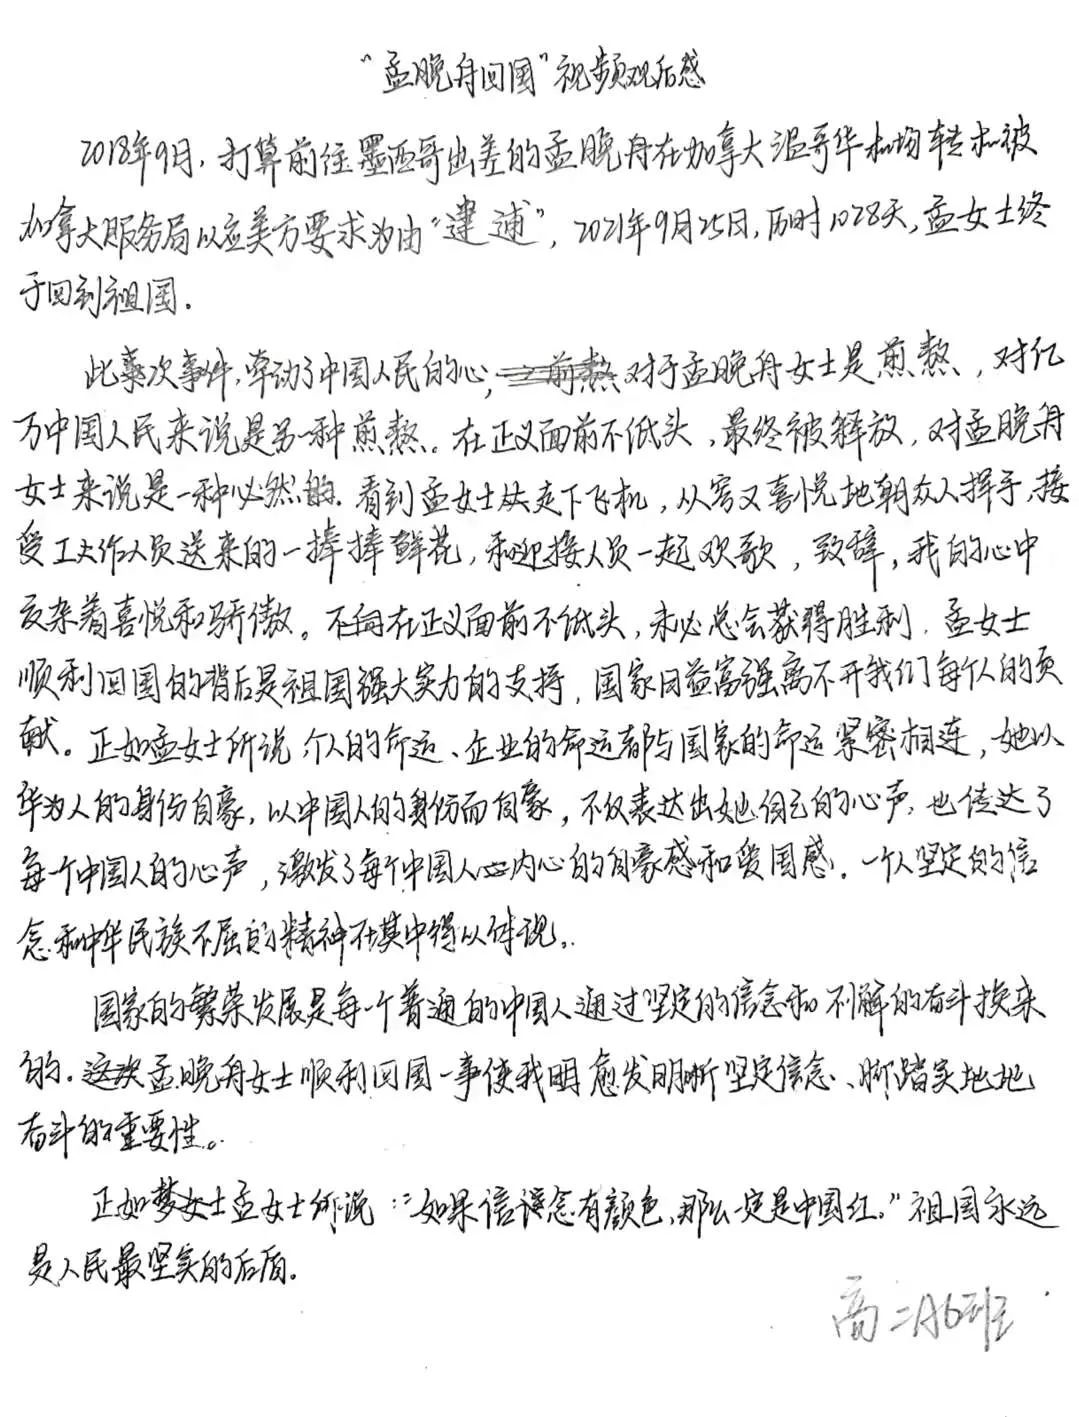 “孟晚舟回国”视频观后感
2018年9月，打算前往墨西哥出差的孟晚舟在加拿大温哥华机场转机被
加拿大服务局以应美方要求为由“逮逋”，2021年9月25日，历时1028天，孟女士终
于回到祖国。
此次事件，牵动了中国人民的心，对于孟晚舟女士是煎熬，对亿
万中国人民来说是另一种煎熬。在正义面前不低头，最终被释放，对孟晚舟
女士来说是一种必然的。看到孟女士走下飞机，从容又喜悦地朝众人挥手，接
受工作人员送来的一捧捧鲜花，和迎接人员一起欢歌，致辞，我的心中
交杂着喜悦和骄傲。不向在正义面前不低头，未必总会获得胜利，孟女士
顺利回国的背后是祖国强大实力的支持，国家日益富强离不开我们每个人的贡
献。正如孟女士所说，个人的命运、企业的命运都与国家的命运紧密相连，她以
华为人的身份自豪，以中国人的身份而自豪，不仅表达出她自己的心声，也传达了
每个中国人的心声，激发了每个中国人内心的自豪感和爱国感。一个人坚定的信
念和中华民族不屈的精神在其中得以体现。
国家的繁荣发展是每一个普通的中国人通过坚定的信念和不懈的奋斗换来
的。这次孟晚舟女士顺利回国一事使我明愈发明晰坚定信念、脚踏实地地
奋斗的重要性。
正如孟女士所说：“如果信念有颜色，那么一定是中国红。”祖国永远
是人民最坚实的后盾。
高二A6班